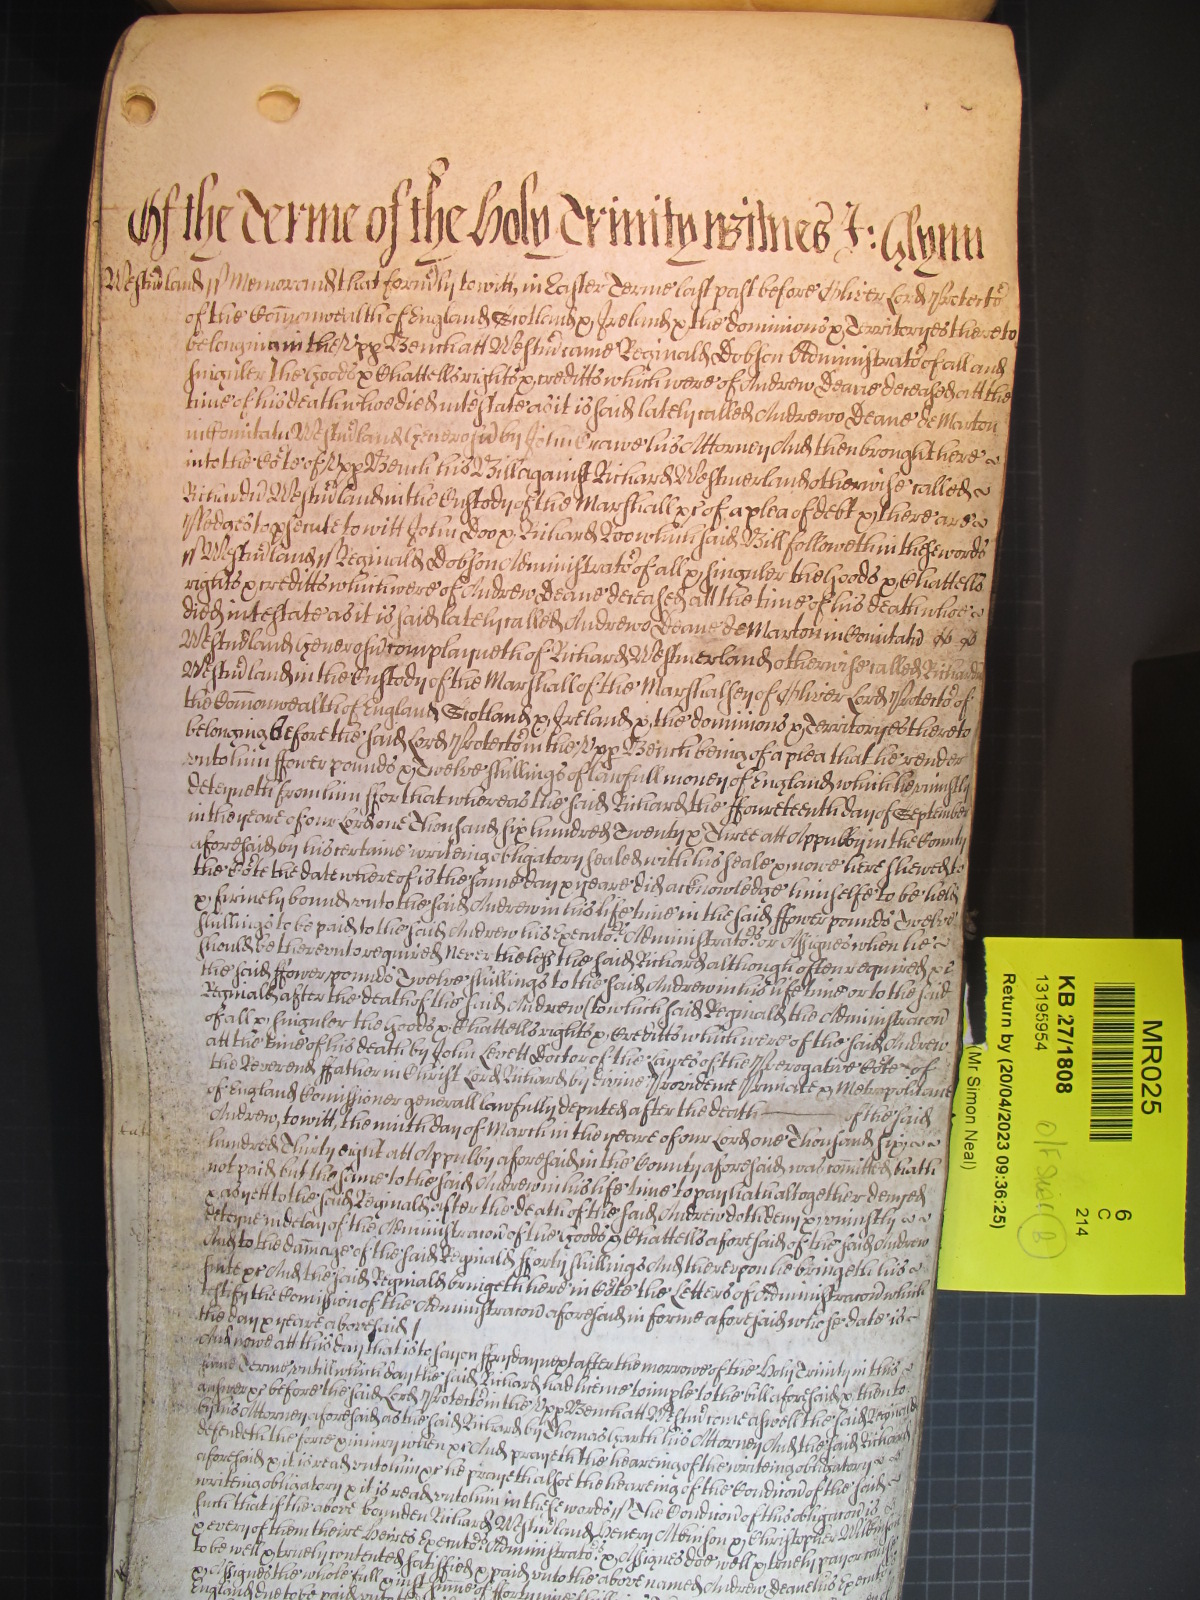 Of the Terme of the Holy Trinity Witnes J: Glynn
Westm̃land ss Memorand that formɫy to witt in Easter Terme last past before Oliver Lord Protector
of the Com̃onwealth of England Scotland & Ireland & the dominions & Territoryes thereto
belonging in the Vpp Bench att Westm̃ came Reginald Dobson Administrator of all and
singuler the Goods & Chattells rights & creditts which were of Andrew Deane deceased att the
time of his death who died intestate as it is said lately called Andrewe Deane de Marton
in Comitatu Westm̃land generosu by John Crawe his Attorney And then brought here
into the Cõte of Vpp Bench his Bill against Richard Westmerland otherwise called
Richardu Westm̃land in the Custody of the Marshall &c of a plea of debt & there are
Pledges to psecute to witt John Doo & Richard Roo which said Bill followeth in these words
ss Westm̃land ss Reginald Dobson Administrator of all & singuler the Goods & Chattells
rights & creditts which were of Andrew Deane deceased att the time of his death whoe
died intestate as it is said lately called Andrewe Deane de Marton in Comitatu
Westm̃land generosu complayneth of Richard Westmerland otherwise called Richardu
Westm̃land in the Custody of the Marshall of the Marshalsey of Oliver Lord Protector of
the Com̃onwealth of England Scotland & Ireland & the dominions & Territoryes thereto
belonging before the said Lord Protector in the Vpp Bench being of a plea that he render
vnto him ffower pounds & Twelve shillings of lawfull money of England which he vniustly
deteyneth from him ffor that whereas the said Richard the ffoureteenth day of September
in the yeare of our Lord one Thousand six hundred Twenty & Three att Appulby in the County
aforesaid by his certaine writeing obligatory sealed with his seale & nowe here shewed to
the Cõte the date whereof is the same day & yeare did acknowledge himselfe to be held
& firmely bound vnto the said Andrew in his life time in the said ffower pounds Twelve
shillings to be paid to the said Andrew his Executors Administrators or Assignes when he
should be therevnto required Never the less the said Richard although often required &c
the said ffower pounds Twelve shillings to the said Andrew in his life time or to the said
Reginald after the death of the said Andrew (to which said Reginald the Administracon
of all & singuler the Goods & Chattells rights & Creditts which were of the said Andrew
att the time of his death by John Levett Doctor of the Lawes of the Prerogative Cõte of
the Reverend ffather in Christ Lord Richard by divine Providence Primate & Metropolitane
of England Comissioner generall lawfully deputed after the death of the said
Andrew, to witt, the ninth day of March in the yeare of our Lord one Thousand six
hundred Thirty eight att Appulby aforesaid in the County aforesaid was com̃itted) hath
not paid but the same to the said Andrew in his life time to pay hath altogether denyed
& as yett to the said Reginald after the death of the said Andrew doth deny & vniustly
deteyne in delay of the Administracon of the Goods & Chattells aforesaid of the said Andrew
And to the dammage of the said Reginald fforty shillings And therevpon he bringeth his
sute &c And the said Reginald bringeth here in Cõte the Letters of Administracon which
testify the Comission of the Administracon aforesaid in forme aforesaid whose date is
the day & yeare abovesaid
And nowe att this day that is to say on ffryday next after the morrowe of the Holy Trinity in this
same Terme vntill which day the said Richard had licence to imple to the bill aforesaid & then to
answer &c before the said Lord Protector in the Vpp Bench att Westm̃ come aswell the said Reginald
by his Attorney aforesaid as the said Richard by Thomas Garth his Attorney And the said Richard
defendeth the force & iniury when &c And prayeth the heareing of the writeing obligatory
aforesaid & it is read vnto him &c he prayeth alsoe the heareing of the Condicon of the said
writeing obligatory & it is read vnto him in these words ss The Condicon of this obligacon is
such that if the above bounden Richard Westm̃land Henery Atkinson & Christopher Wilkinson
& every of them theire Heires Executors Administrators & Assignes doe well & truely pay or cause
to be well & truely contented satisfied & paid vnto the above named Andrew Deane his Executors
& Assignes the whole full & iust sum̃e of
England due to be paid
MR025
6
C
214
KB 27/1808
13195954
Return by (20/04/2023 09:36:25)
(Mr Simon Neal)